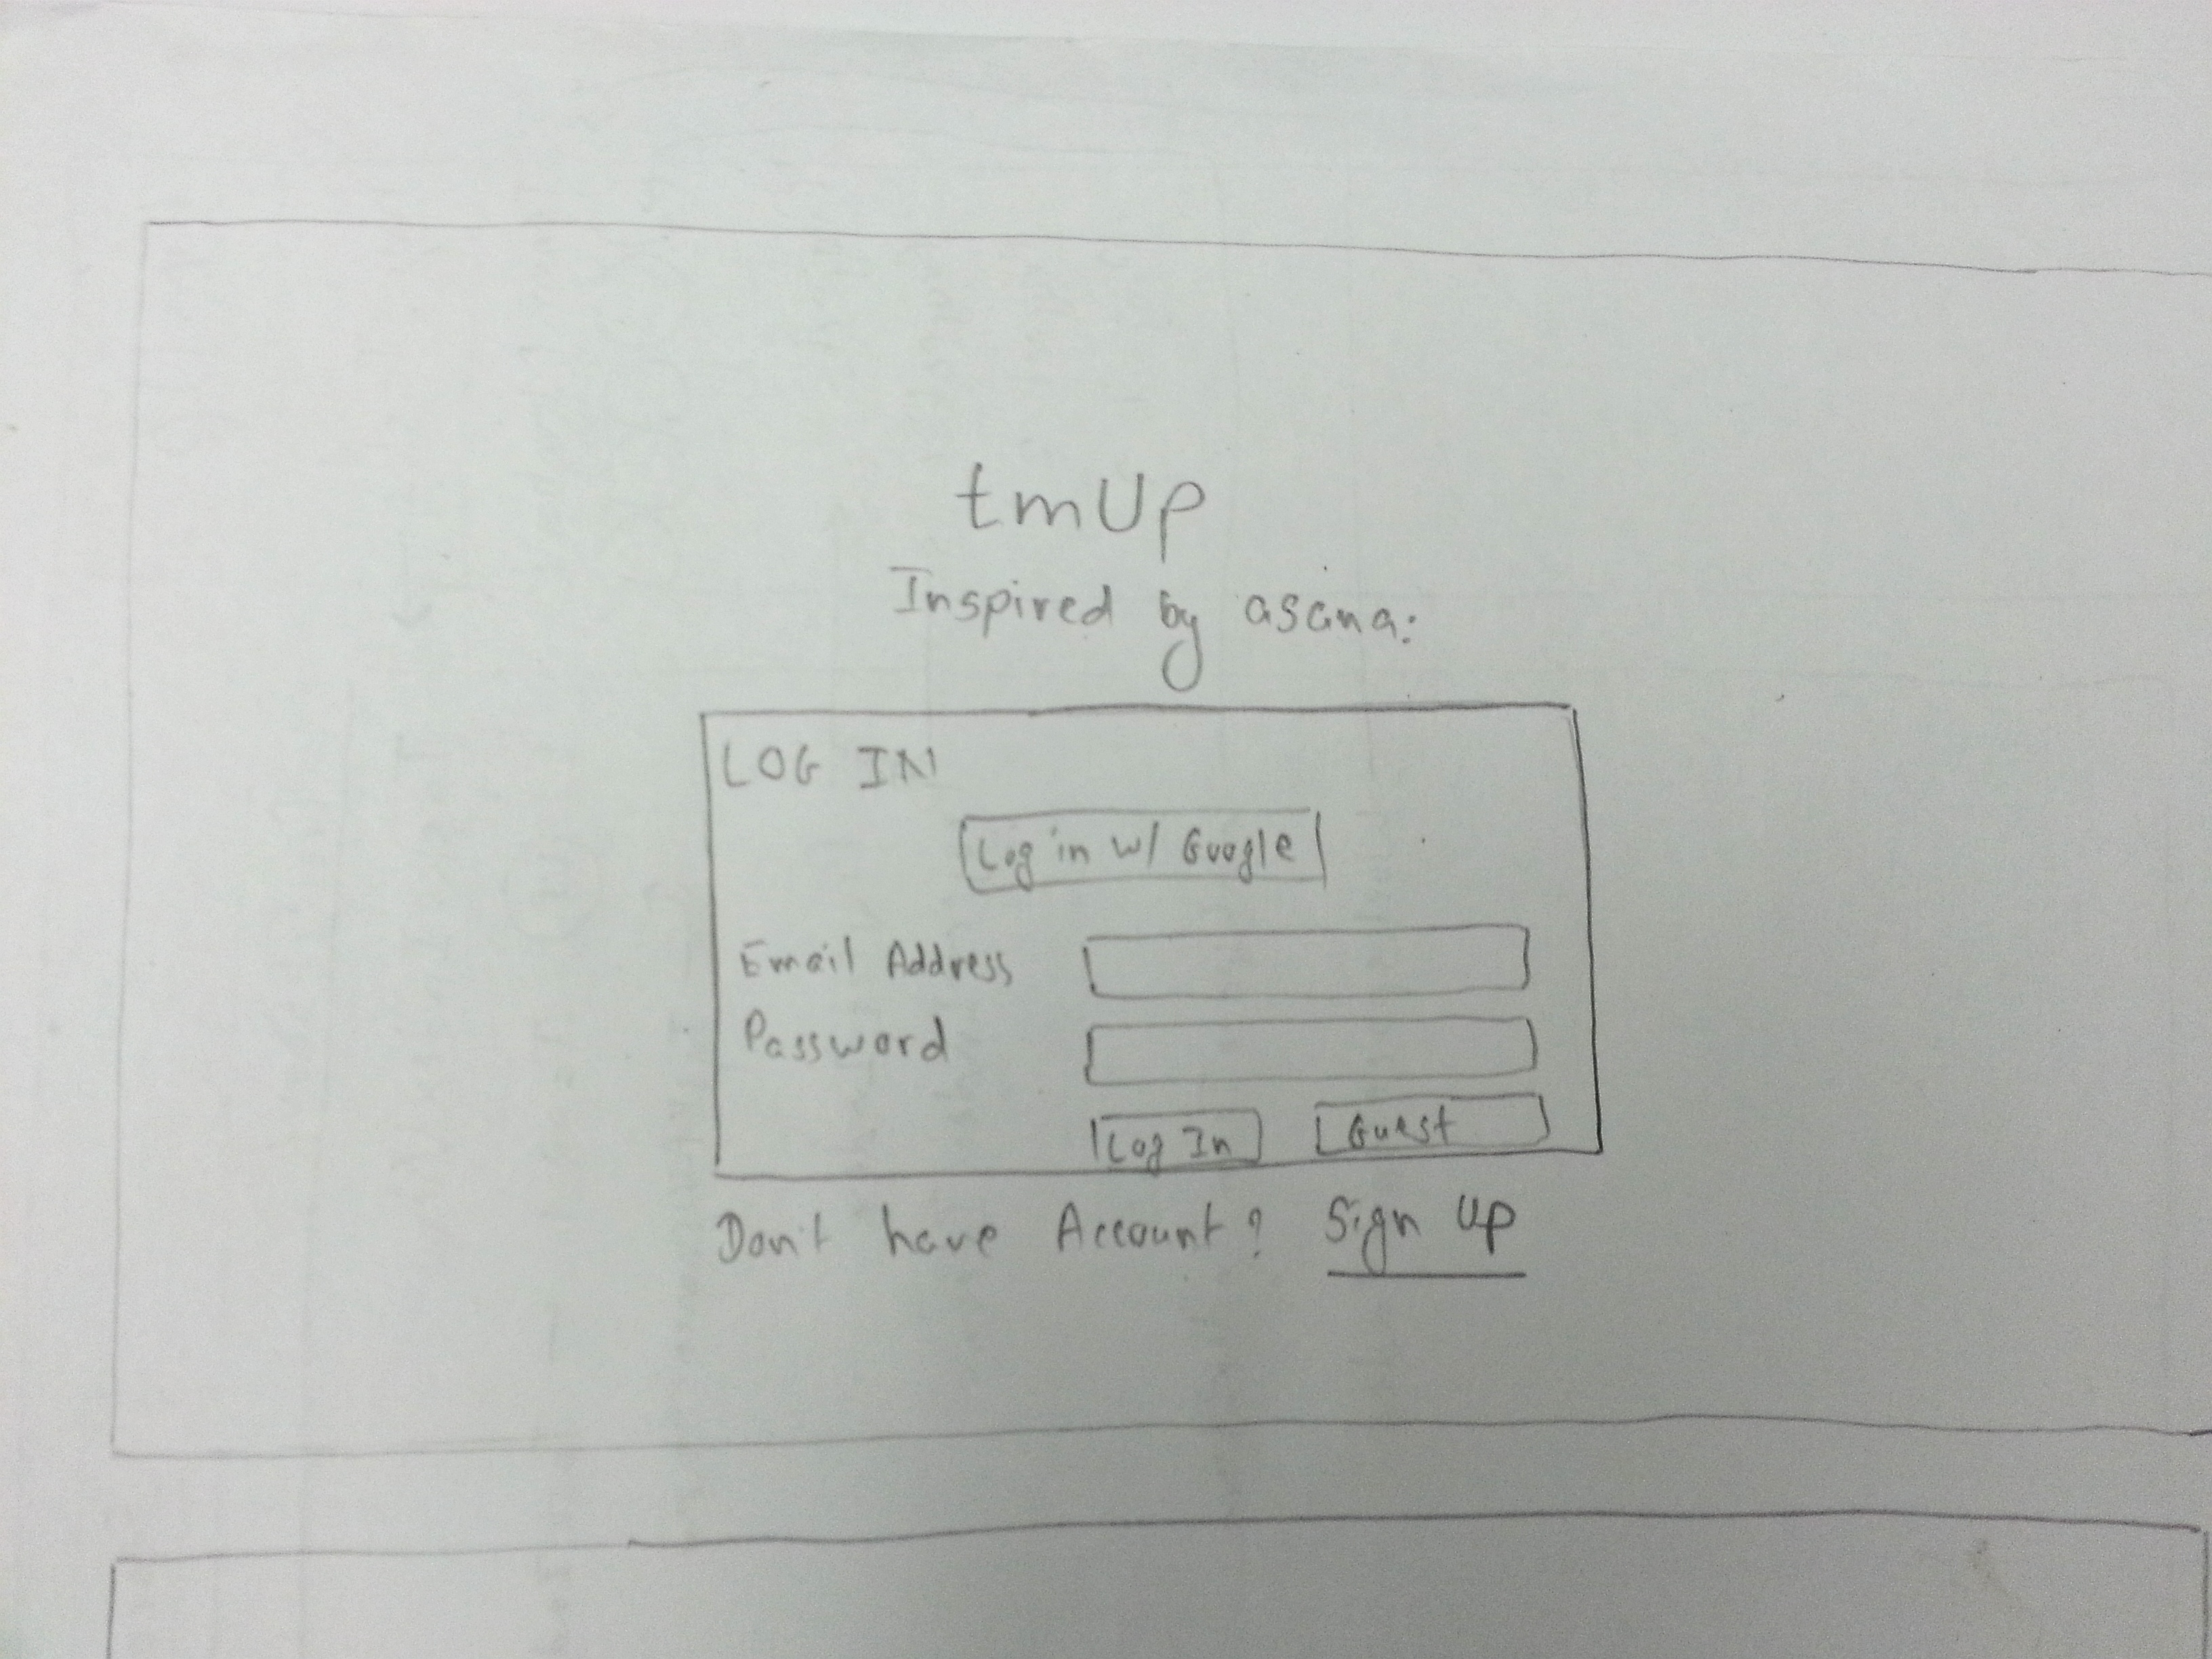 tmUp
Inspired by asana:
LOG IN
Log in w/ Google
Email Address
Password
Log In Guest
Don't have Account? Sign Up